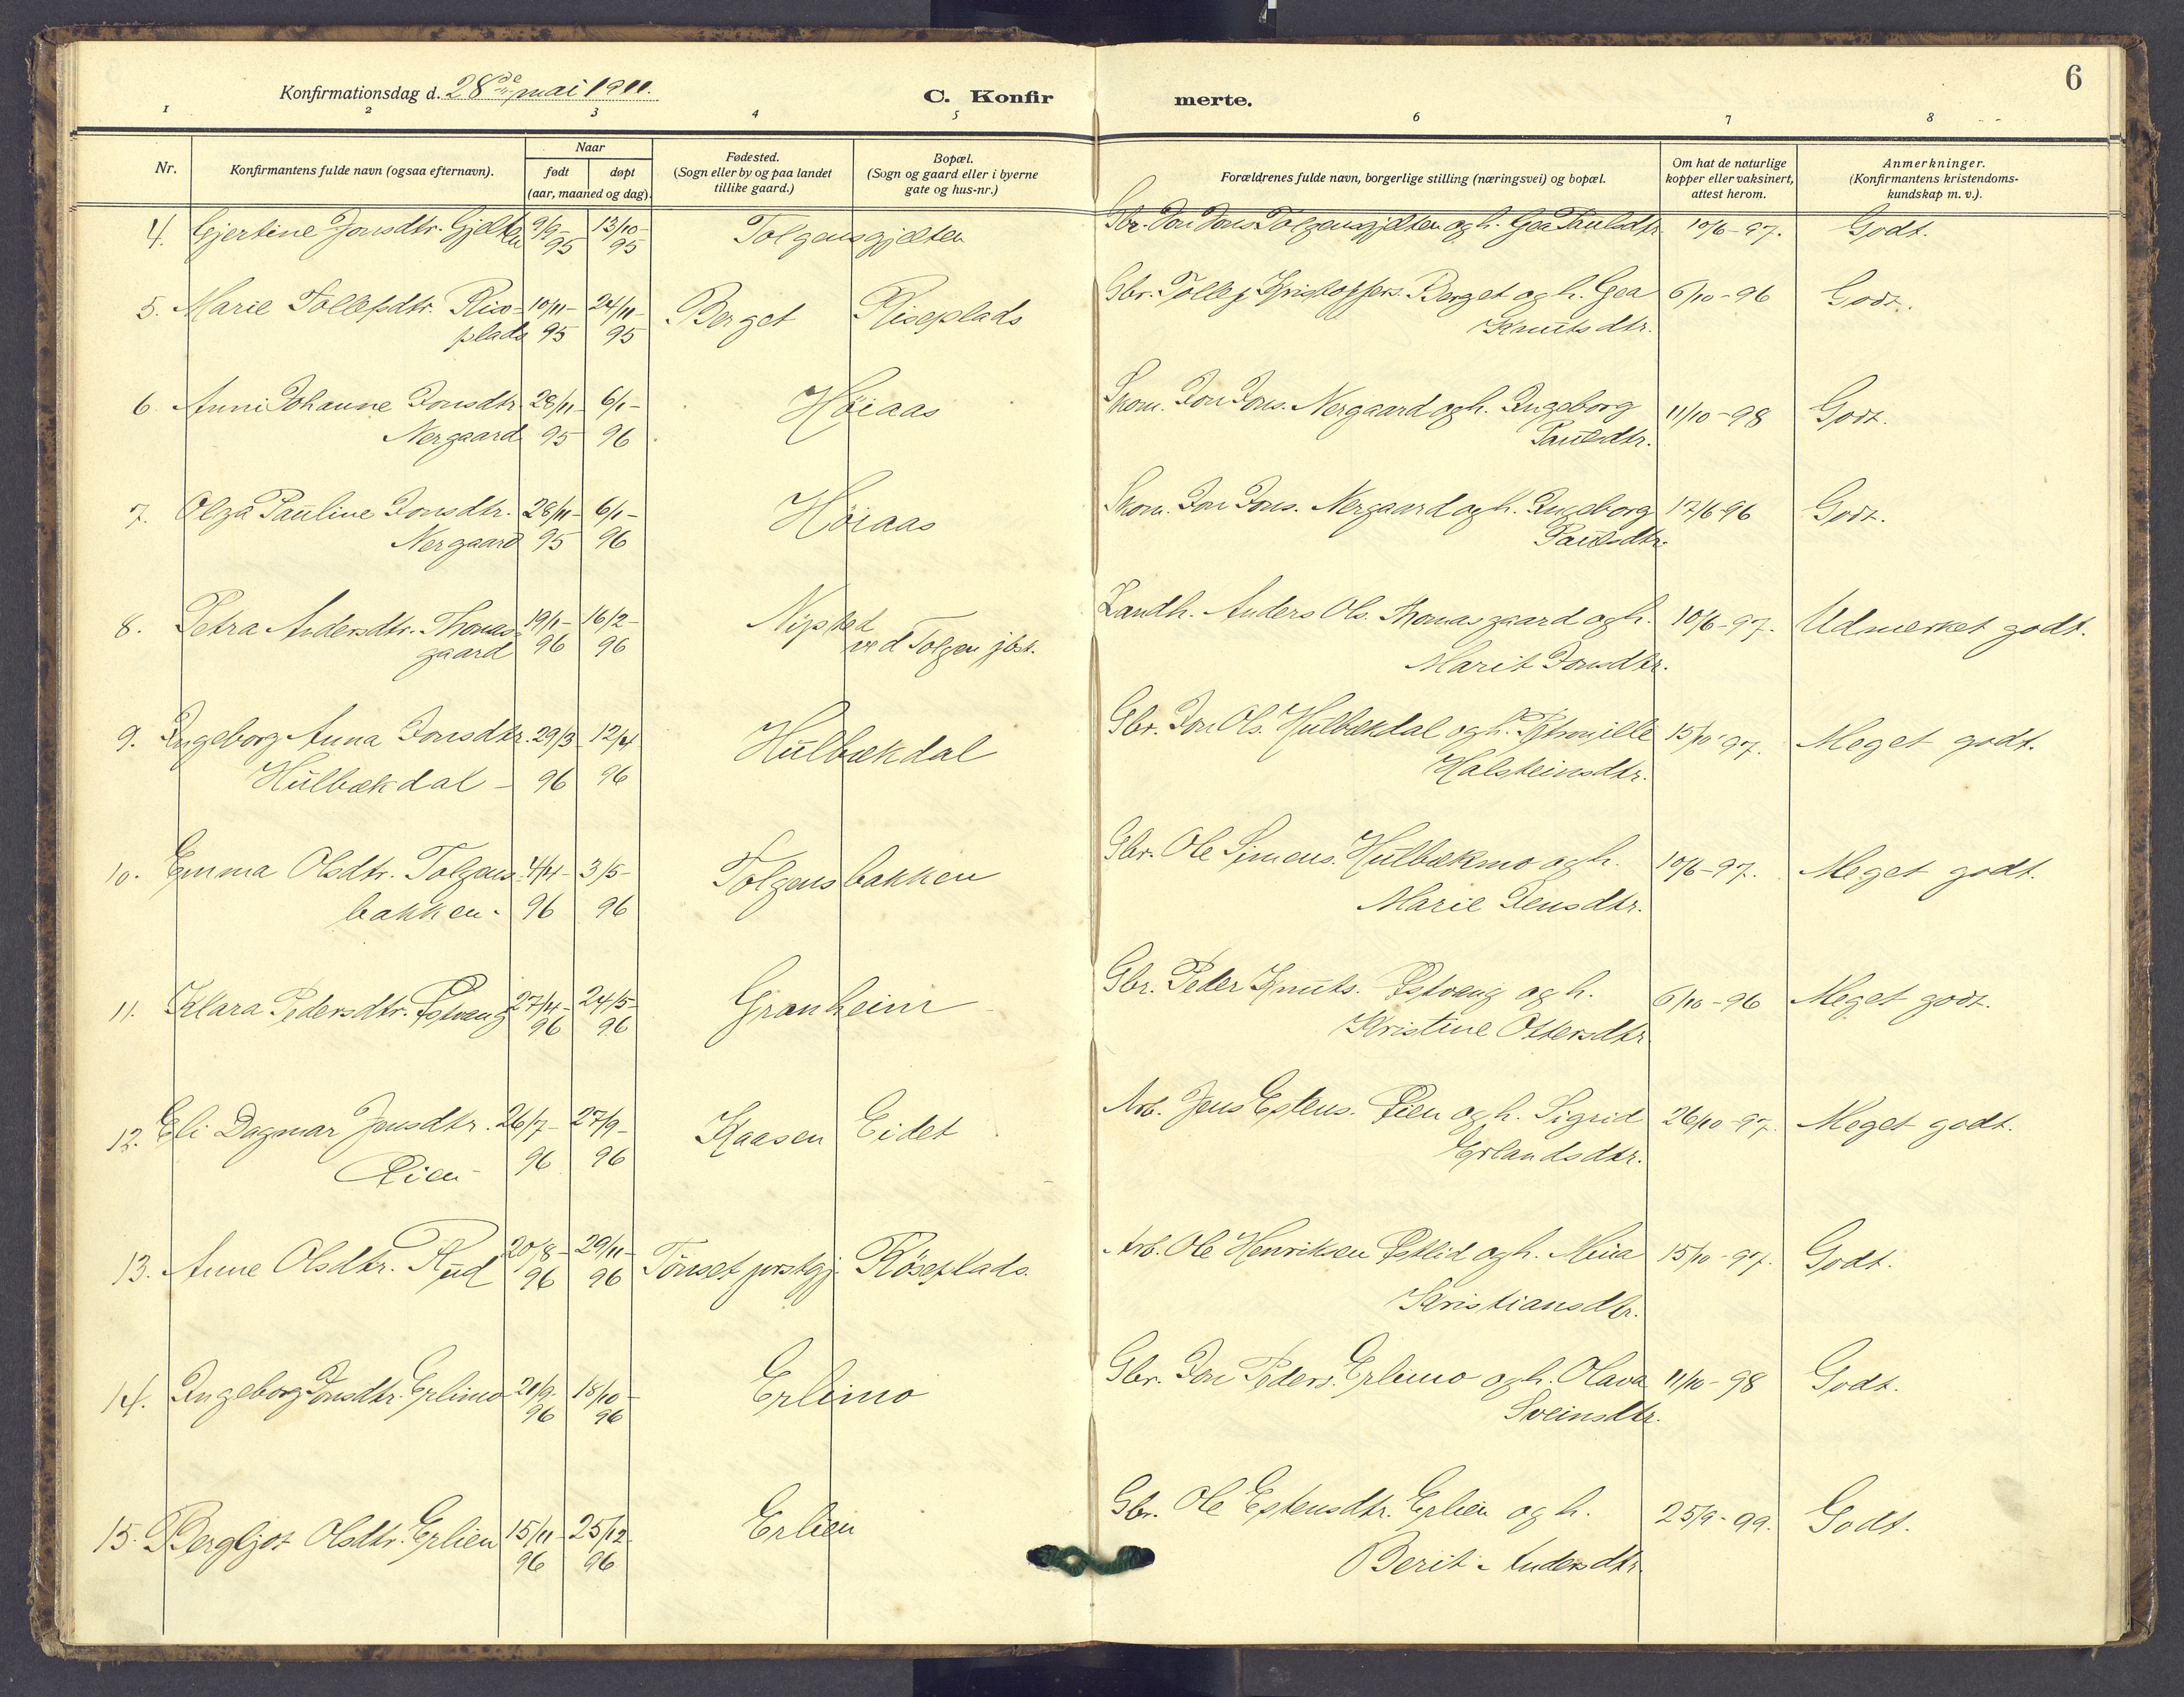 6
Konfirmationsdag d. 28de mai 1911.
C. Konfirmerte.
1 2 3 4 5 6 7 8
Nr.
Konfirmantens fulde navn (ogsaa efternavn).
Naar
født døpt
(aar, maaned og dag).
Fødested.
(Sogn eller by og paa landet
tillike gaard.)
Bopæl.
(Sogn og gaard eller i byerne
gate og hus-nr.)
Forældrenes fulde navn, borgerlige stilling (næringsvei) og bopæl.
Om hat de naturlige
kopper eller vaksinert,
attest herom.
Anmerkninger.
(Konfirmantens kristendoms-
kundskap m. v.).
4. Gjertine Jonsdtr. Gjelten 9/9- 13/10- Tolgensgjelten Gbr. Jon Jons. Tolgensgjelten og h. Gea Paulsdtr. 10/6-97. Godt.
95 95
5. Marie Tollefsdtr. Rise- 10/11- 24/11- Berget Riseplads Gbr. Tollef Kristoffers. Berget og h. Gea 6/10-96 Godt.
plads 95 95 Knutsdtr.
6. Anni Johanne Jonsdtr. 28/11- 6/1- Höiaas Skom. Jon Jons. Nergaard og h. Ingeborg 11/10-98 Godt.
Nergaard 95 96 Paulsdtr.
7. Olga Pauline Jonsdtr. 28/11- 6/1- Höiaas Skom. Jon Jons. Nergaard og h. Ingeborg 17/6-96 Godt.
Nergaard 95 96 Paulsdtr.
8. Petra Andersdtr. Thomas- 19/1- 16/2- Nysted Landh. Anders Ols. Thomasgaard og h. 10/6-97. Udmerket godt.
gaard 96 96 ved Tolgen jbst. Marit Jonsdtr.
9. Ingeborg Anna Jonsdtr. 29/3 12/4 Hulbækdal Gbr. Jon Ols. Hulbækdal og h. Petronille 15/10-97. Meget godt.
Hulbækdal - 96 96 Halsteinsdtr.
10. Emma Olsdtr. Tolgens- 4/4- 3/5- Tolgensbakken Gbr. Ole Simens. Hulbækmo og h. 10/6-97. Meget godt.
bakken. 96 96 Marie Jensdtr.
11. Klara Pedersdtr. Østvang 27/4- 24/5- Granheim Gbr. Peder Knuts. Østvang og h. 6/10-96 Meget godt.
96 96 Kristine Ottersdtr.
12. Eli Dagmar Jensdtr. 26/7- 27/9- Kaasen Eidet Arb. Jens Estens. Øien og h. Sigrid 26/10-97. Meget godt.
Øien 96 96 Erlandsdtr.
13. Anne Olsdtr. Rud 20/8- 29/11- Tönset prstgj. Röseplads. Arb. Ole Henriksen Østlid og h. Mina 15/10-97. Godt.
96 96 Kristiansdtr.
14. Ingeborg Jonsdtr. Erlimo 21/9- 18/10- Erlimo Gbr. Jon Peders. Erlimo og h. Olava 11/10-98 Godt.
96 96 Sveinsdtr.
15. Bergljot Olsdtr. Erlien 15/11- 25/12. Erlien Gbr. Ole Estensdtr. Erlien og h. 25/9-99. Godt.
96 96 Berit Andersdtr.